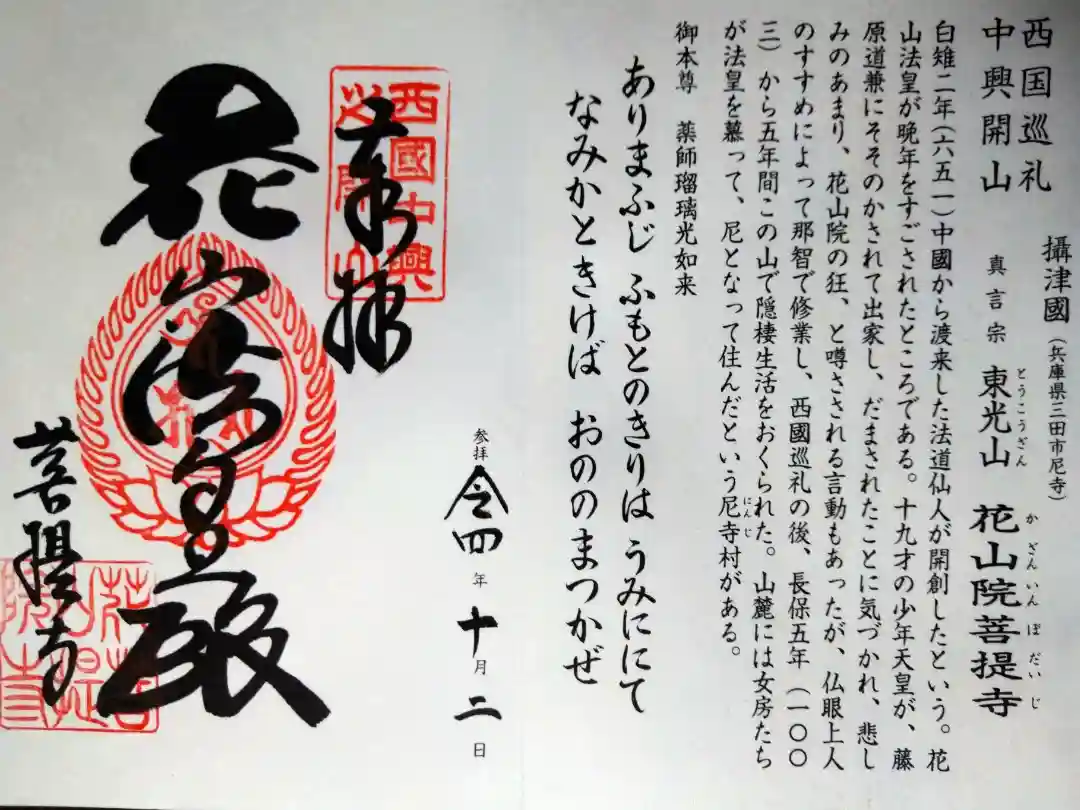 西国巡礼
中興開山
攝津國（兵庫県三田市尼寺）
真言宗 東光山 花山院菩提寺
とうこうざん
かざんいんぼだいじ
白雉二年（六五一）中國から渡来した法道仙人が開創したという。花
山法皇が晩年をすごされたところである。十九才の少年天皇が、藤
原道兼にそそのかされて出家し、だまされたことに気づかれ、悲し
みのあまり、花山院の狂、と噂さされる言動もあったが、仏眼上人
のすすめによって那智で修業し、西國巡礼の後、長保五年（一〇〇
三）から五年間この山で隠棲生活をおくられた。山麓には女房たち
が法皇を慕って、尼となって住んだという尼寺村がある。
にんじ
御本尊 薬師瑠璃光如来
ありまふじ ふもとのきりは うみににて
なみかときけば おののまつかぜ
参拝 令四年 十月 二日
西國中興
奉拝
花山法皇殿
菩提寺